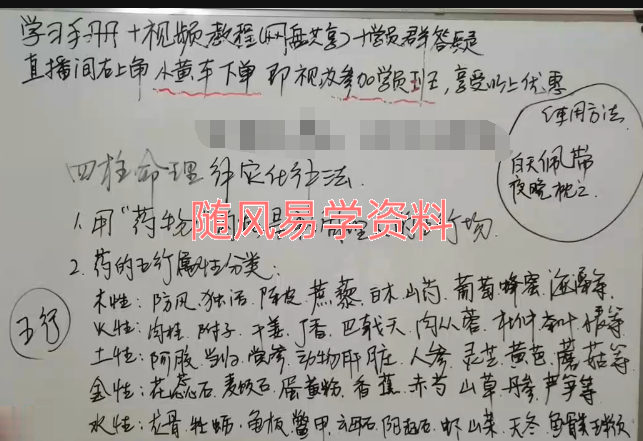 学习手册＋视频教程(网盘共享)＋学员群答疑
直播间右上角小黄车下单即视为参加学员班，享受以上优惠
使用方法
白天佩带
夜晚枕之
四柱命理 化解法.
随风易学资料
1. 用"药物
2. 药的五行属性分类：
五行
木性：防风.独活.陈皮.蒺藜.白术.山药.葡萄.蜂蜜.海藻等
火性：肉桂.附子.干姜.丁香.巴戟天.肉从蓉.杜仲.茶叶.等
土性：阿胶.当归.党参.动物肝脏.人参.灵芝.黄芪.蘑菇等
金性：花蕊石.麦饭石.蛋黄粉.香蕉.赤芍.山草.丹参.芦笋等
水性：龙骨.牡蛎.龟板.鳖甲.云母石.阳起石.虾.山菜.天冬.鱼